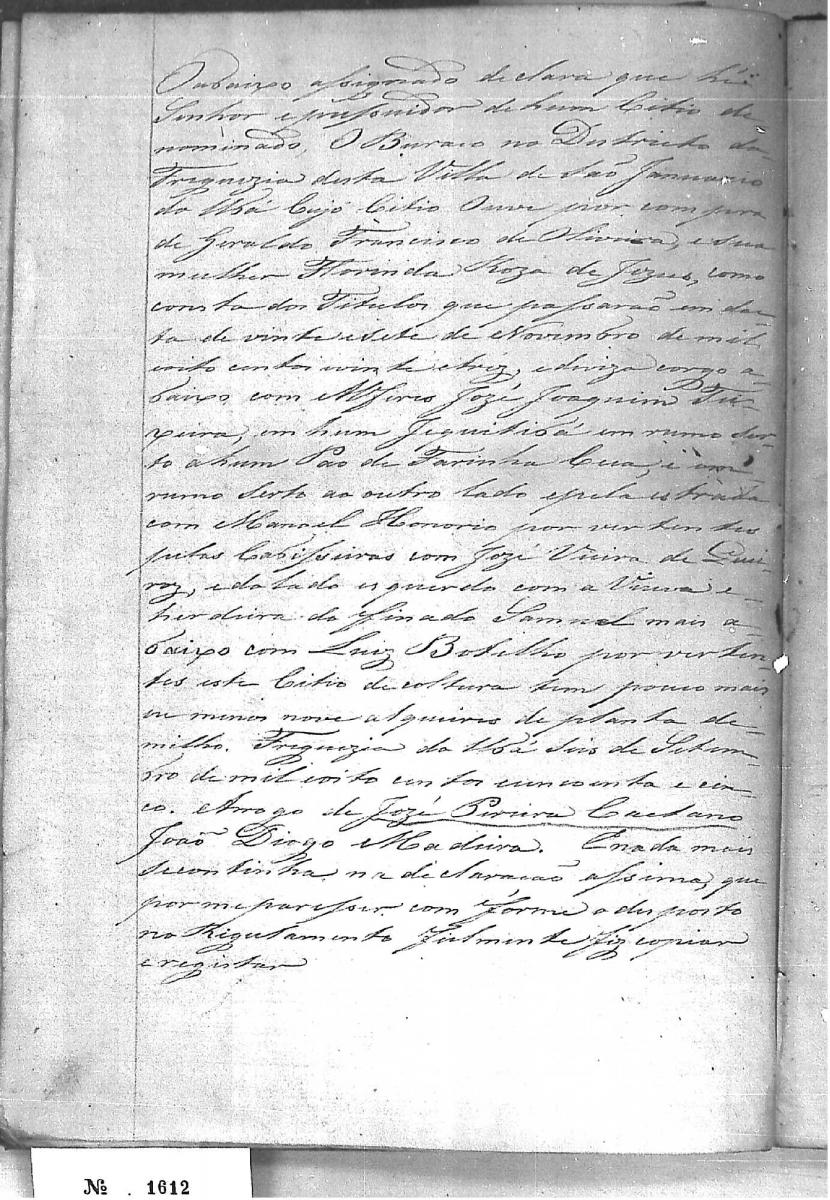 O abaixo assignado declara que hé
Senhor e pussuidor de hum Citio de-
nominado, O Buraco no Districto da
Freguezia desta Villa de São Januario
do Ubá Cujo Citio Ouve por compra
de Geraldo Francisco de Oliveira, e sua
mulher Florinda Roza de Jezus, como
consta dos Titulos que passarão em da-
ta de vinte e sete de Novembro de mil
oito centos vinte e trez, e diviza corgo a-
baixo com Alferes Jozé Joaquim Tei-
xeira, em hum Jequitibá em rumo ser-
to a hum Páo de Farinha Ceca, e em
rumo Serto ao outro lado e pela estrada
com Manoel Honorio por vertentes
pelas Cabisseiras com Jozé Vieira de Quei-
roz, e do lado esquerdo com a Viuva e
herdeira do finado Samuel mais a-
baixo com Luiz Botelho por verten
tes este Citio de coltura tem pouco mais
ou menos nove alqueires de planta de-
milho. Freguezia do Ubá Seis de Setem-
bro de mil oito centos cincoenta e cin-
co. Arogo de Jozé Pereira Caetano
João Diogo Madeira. E nada mais
se continha na declaração assima, que
por me paresser com fórme o disposto
no Regulamento fielmente fiz copiar
e registar
Nº 1612